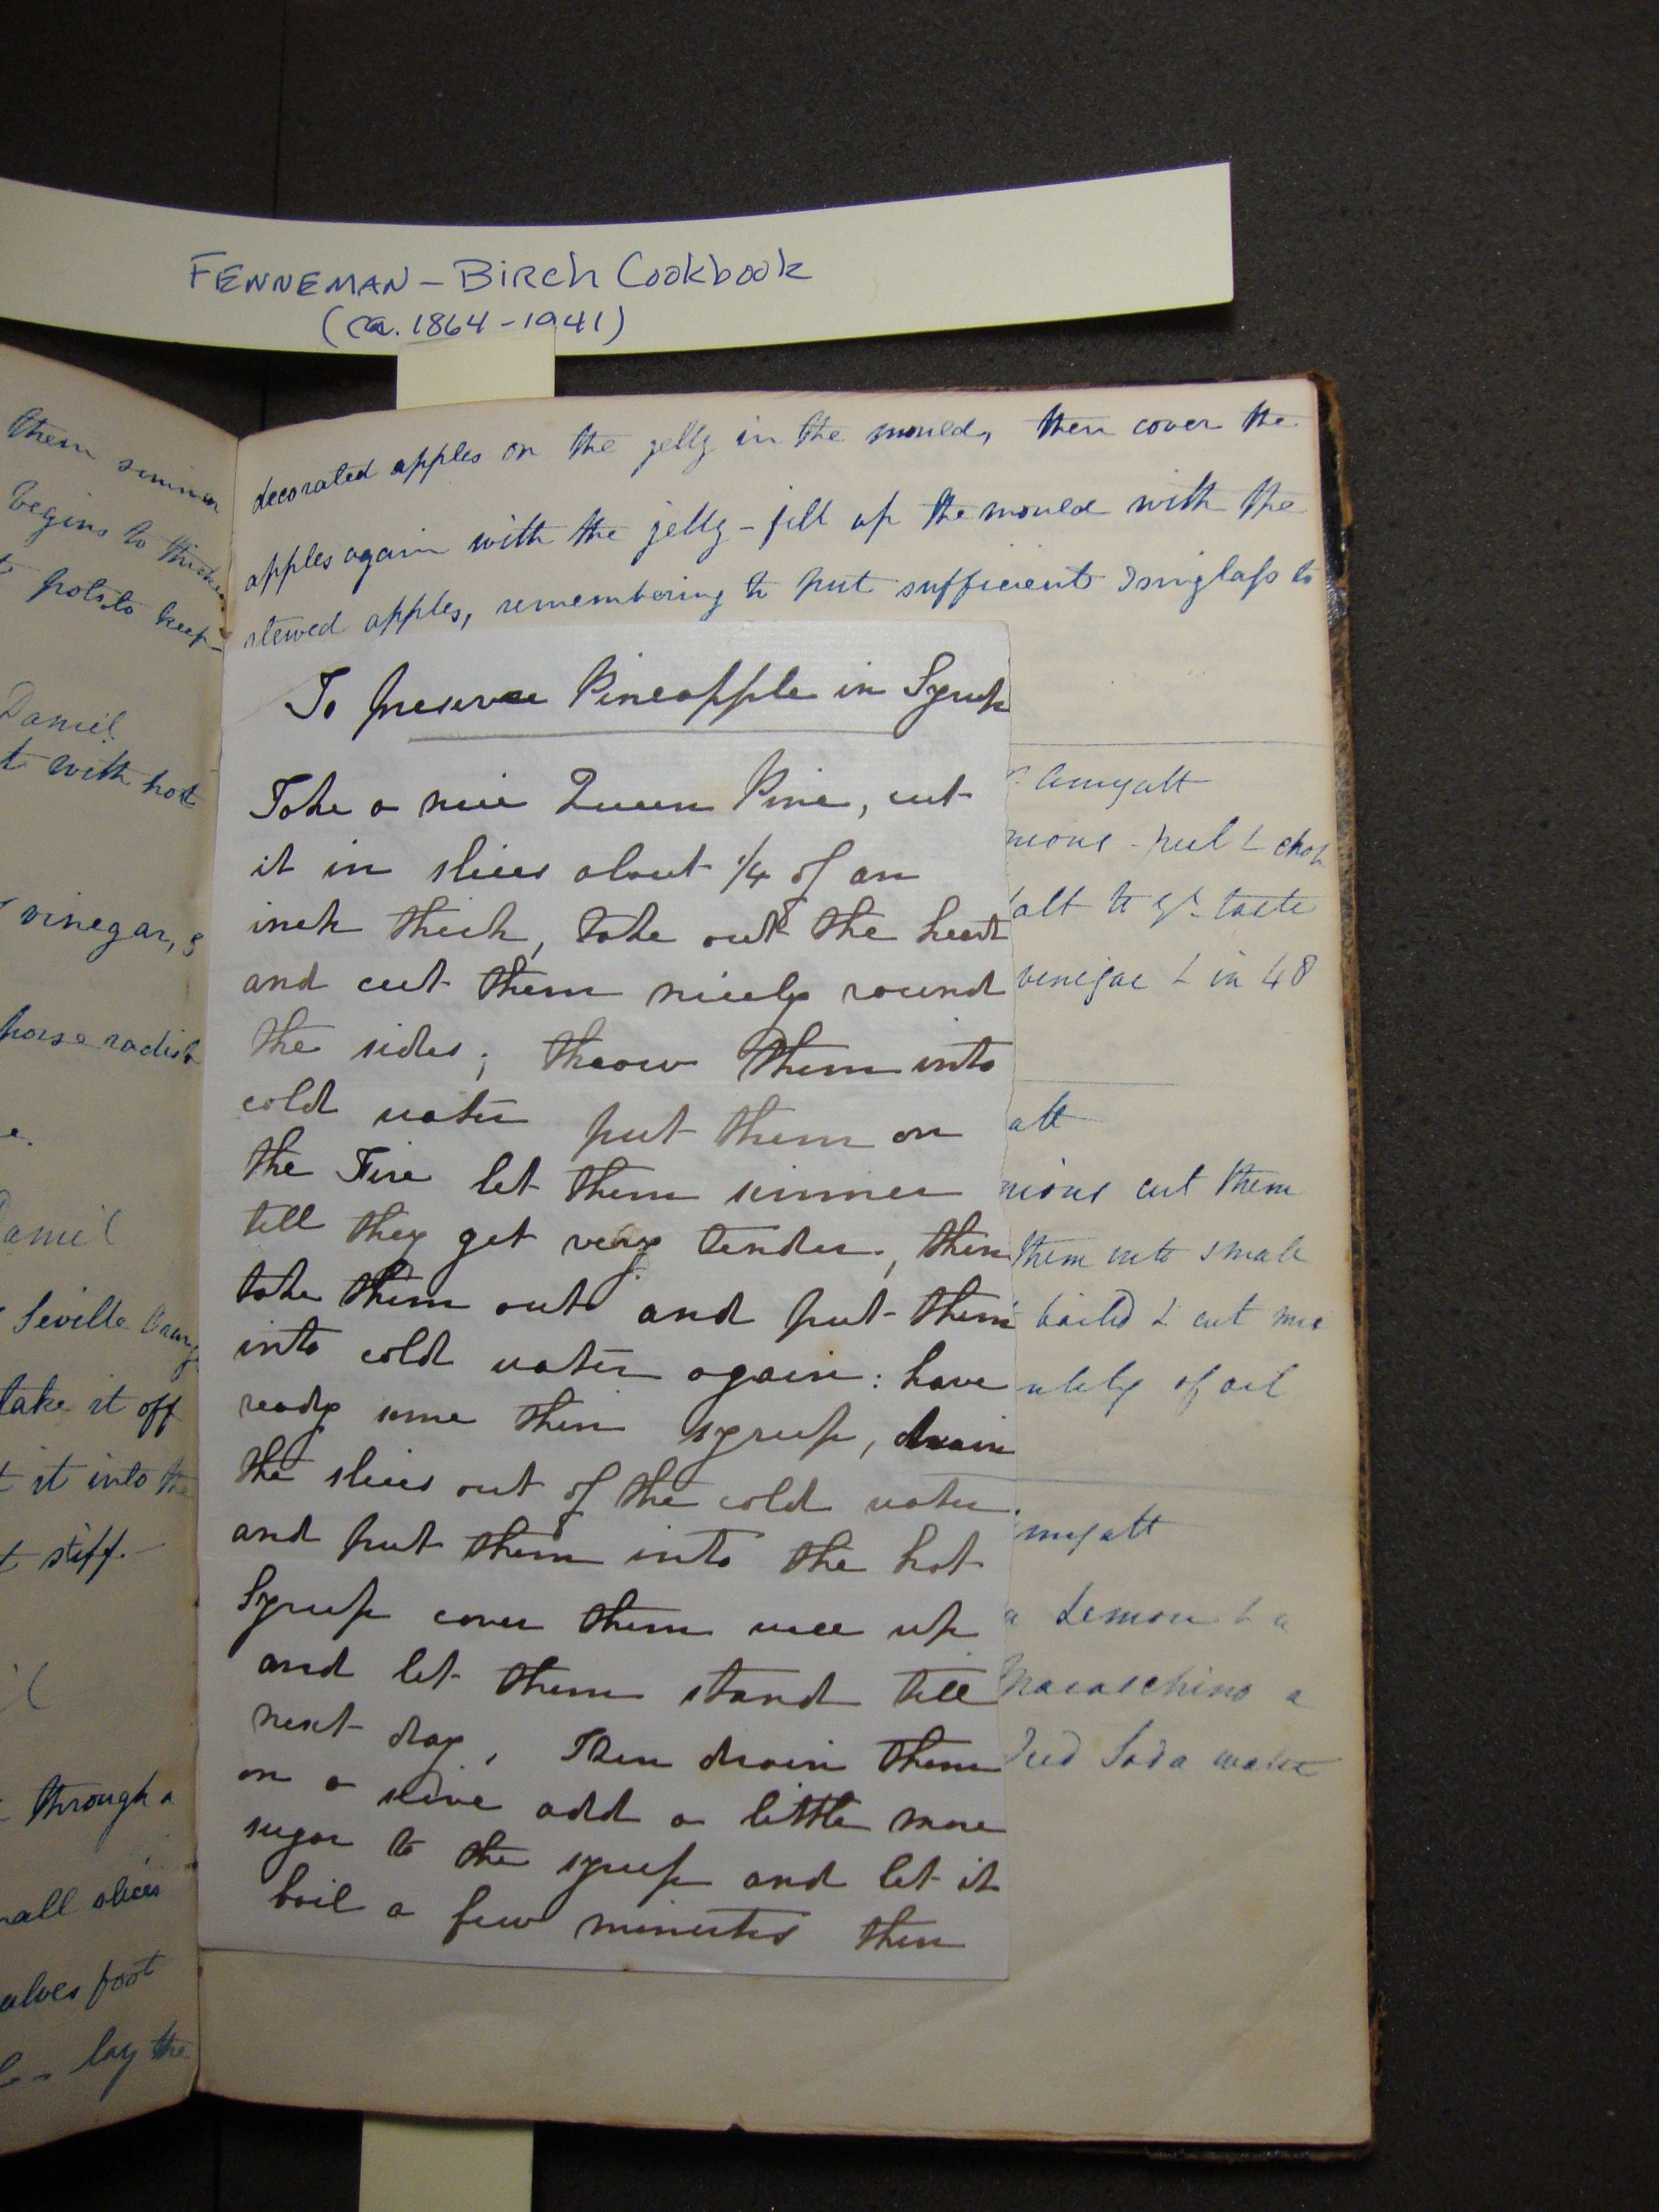 FENNEMAN - Birch Cookbook
(ca. 1864-1941)
them simmer
begins to thicken
pots to keep
Daniel
t with hot
vinegar, &
horse radish
e.
Daniel
Seville Orang
take it off
t it into the
t stiff.-
through a
mall slices
alves foot
lay the
decorated apples on the jelly in the mould, then cover the
apples again with the jelly - fill up the mould with the
stewed apples, remembering to put sufficient Isinglass to
To preserve Pineapple in Syrup
Take a nice Queen Pine, cut
it in slices about 1/4 of an
inch thick, take out the heart
and cut them nicely round
the sides; throw them into
cold water put them on
the Fire let them simmer
till they get very tender, then
take them out and put them
into cold water again: have
ready some thin syrup, drain
the slices out of the cold water
and put them into the hot
Syrup cover them well up
and let them stand till
next day, Then drain them
on a seive add a little more
sugar to the syrup and let it
boil a few minutes then
amyatt
nions - peel & chop
salt to yr. taste
venegar & in 48
att
nions cut them
them into small
boiled & cut
of oil
myatt
a Lemon & a
Maraschino a
Soda water